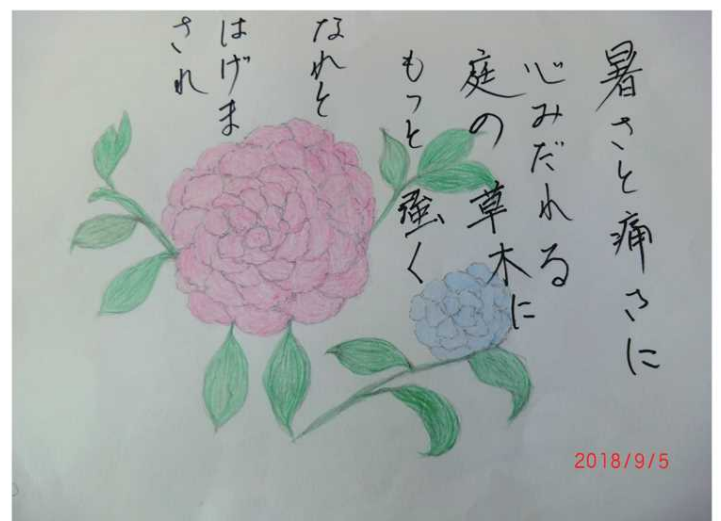 暑さと痛さに
心みだれる
庭の草木に
もっと強く
なれと
はげま
され
2018/9/5